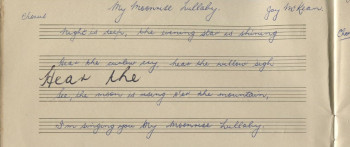 My Moonrise Lullaby. Joy McKean
Chorus
Night is deep, the evening star is shining
Hear the curlew cry, hear the willow sigh
Hear the
See, the moon is rising o'er the mountain,
I'm singing you My Moonrise Lullaby.